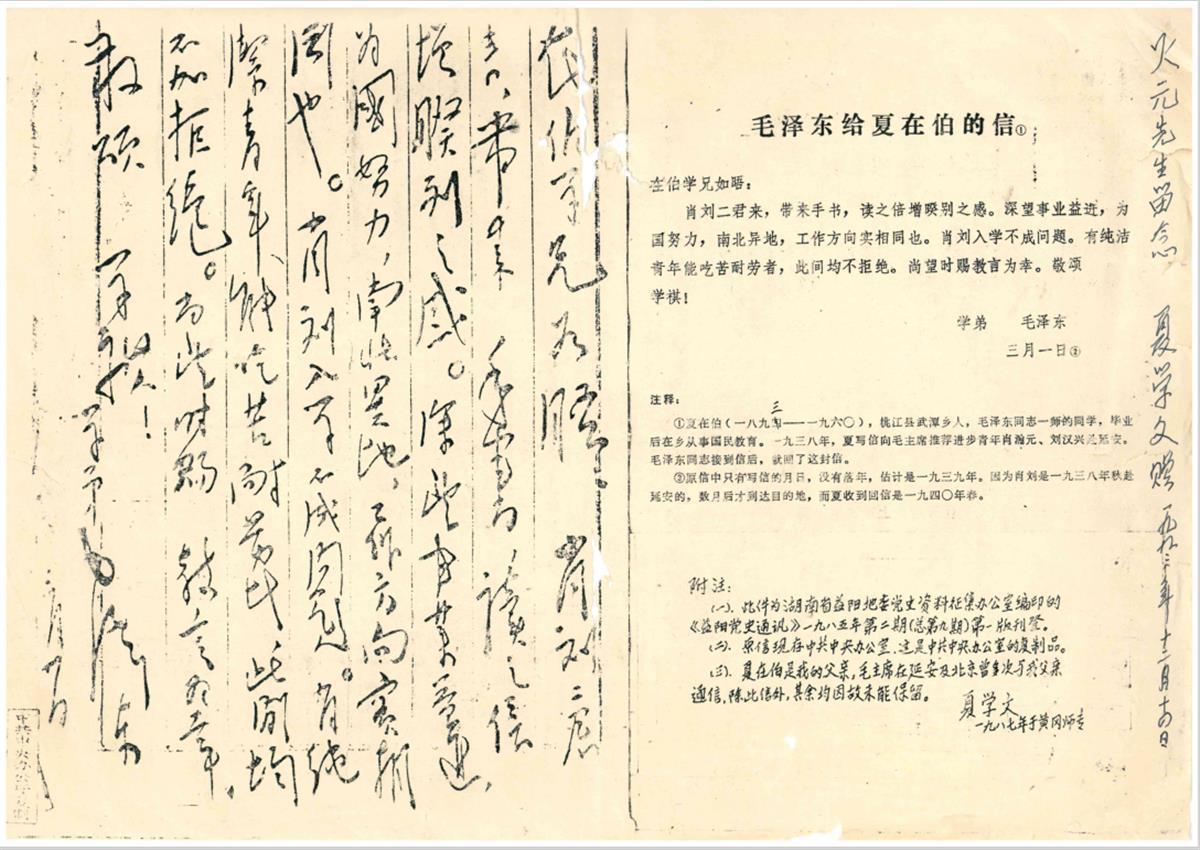 在伯学兄如晤 肖刘二君
来，带来 手书，讀之倍
增暌别之感。深望事業益進，
为國努力，南北異地，工作方向實相
同也。肖刘入学不成问题。有纯
潔青年、能吃苦耐劳者，此間均
不加拒绝。尚望时赐 教言为幸。
敬颂 学祺！ 学弟毛泽东
三月一日
毛泽东给夏在伯的信①
在伯学兄如晤：
肖刘二君来，带来手书，读之倍增暌别之感。深望事业益进，为
国努力，南北异地，工作方向实相同也。肖刘入学不成问题。有纯洁
青年能吃苦耐劳者，此间均不拒绝。尚望时赐教言为幸。敬颂
学祺！
学弟 毛泽东
三月一日②
注释：
三
①夏在伯（一八九四——一九六〇），桃江县武潭乡人，毛泽东同志一师的同学，毕业
后在乡从事国民教育。一九三八年，夏写信向毛主席推荐进步青年肖瀚元、刘汉兴赴延安。
毛泽东同志接到信后，就回了这封信。
②原信中只有写信的月日，没有落年，估计是一九三九年。因为肖刘是一九三八年秋赴
延安的，数月后才到达目的地，而夏收到回信是一九四〇年春。
附注：
（一）、此件为湖南省益阳地委党史资料征集办公室编印的
《益阳党史通讯》一九八五年第二期（总第九期）第一版刊登。
（二）、原信现存中共中央办公室，这是中共中央办公室的复制品。
（三）、夏在伯是我的父亲，毛主席在延安及北京曾多次与我父亲
通信，除此信外，其余均因故未能保留。
夏学文
一九八七年于黄冈师专
火元先生留念 夏学文赠